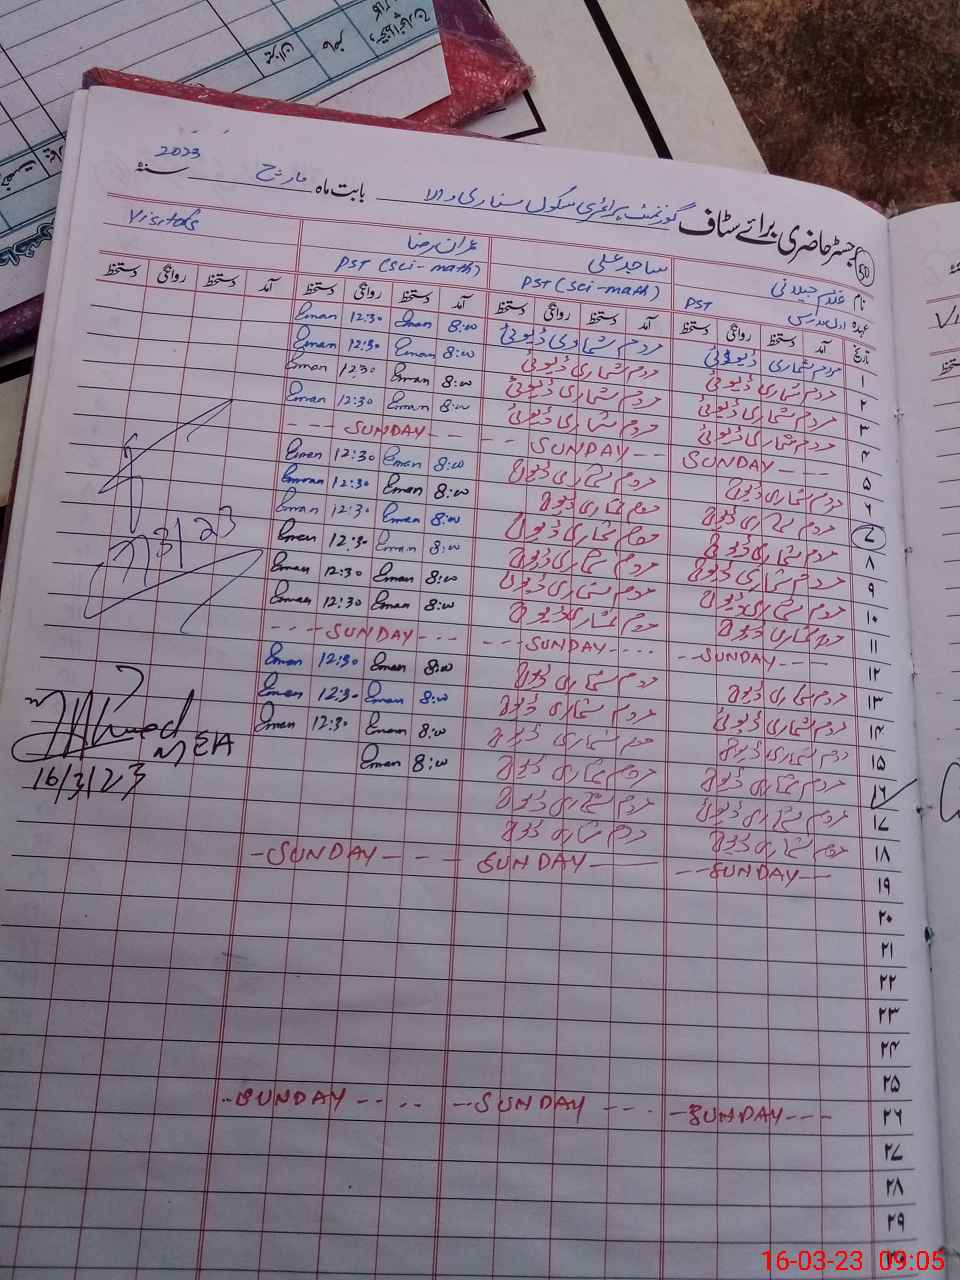 رجسٹر حاضری برائے سٹاف گورنمنٹ پرائمری سکول بابت ماہ مارچ سنہ 2023
50
نام غلام جیلانی ساجد علی عمران رضا Visitors
عہدہ PST PST (Sci-math) PST (Sci-math)
تاریخ آمد دستخط روانگی دستخط آمد دستخط روانگی دستخط آمد دستخط روانگی دستخط آمد دستخط روانگی دستخط
۱ مردم شماری ڈیوٹی مردم شماری ڈیوٹی 8:00 12:30
۲ مردم شماری ڈیوٹی مردم شماری ڈیوٹی 8:00 12:30
۳ مردم شماری ڈیوٹی مردم شماری ڈیوٹی 8:00 12:30
۴ مردم شماری ڈیوٹی مردم شماری ڈیوٹی 8:00 12:30
۵ SUNDAY SUNDAY SUNDAY
۶ مردم شماری ڈیوٹی مردم شماری ڈیوٹی 8:00 12:30
۷ مردم شماری ڈیوٹی مردم شماری ڈیوٹی 8:00 12:30
۸ مردم شماری ڈیوٹی مردم شماری ڈیوٹی 8:00 12:30
۹ مردم شماری ڈیوٹی مردم شماری ڈیوٹی 8:00 12:30
۱۰ مردم شماری ڈیوٹی مردم شماری ڈیوٹی 8:00 12:30
۱۱ مردم شماری ڈیوٹی مردم شماری ڈیوٹی 8:00 12:30
۱۲ SUNDAY SUNDAY SUNDAY
۱۳ مردم شماری ڈیوٹی مردم شماری ڈیوٹی 8:00 12:30
۱۴ مردم شماری ڈیوٹی مردم شماری ڈیوٹی 8:00 12:30
۱۵ مردم شماری ڈیوٹی مردم شماری ڈیوٹی 8:00 12:30
۱۶ مردم شماری ڈیوٹی مردم شماری ڈیوٹی 8:00
۱۷ مردم شماری ڈیوٹی مردم شماری ڈیوٹی
۱۸ مردم شماری ڈیوٹی مردم شماری ڈیوٹی
۱۹ SUNDAY SUNDAY SUNDAY
۲۰
۲۱
۲۲
۲۳
۲۴
۲۵
۲۶ SUNDAY SUNDAY SUNDAY
۲۷
۲۸
۲۹
7/3/23
Ahmed
MEA
16/3/23
16-03-23 09:05